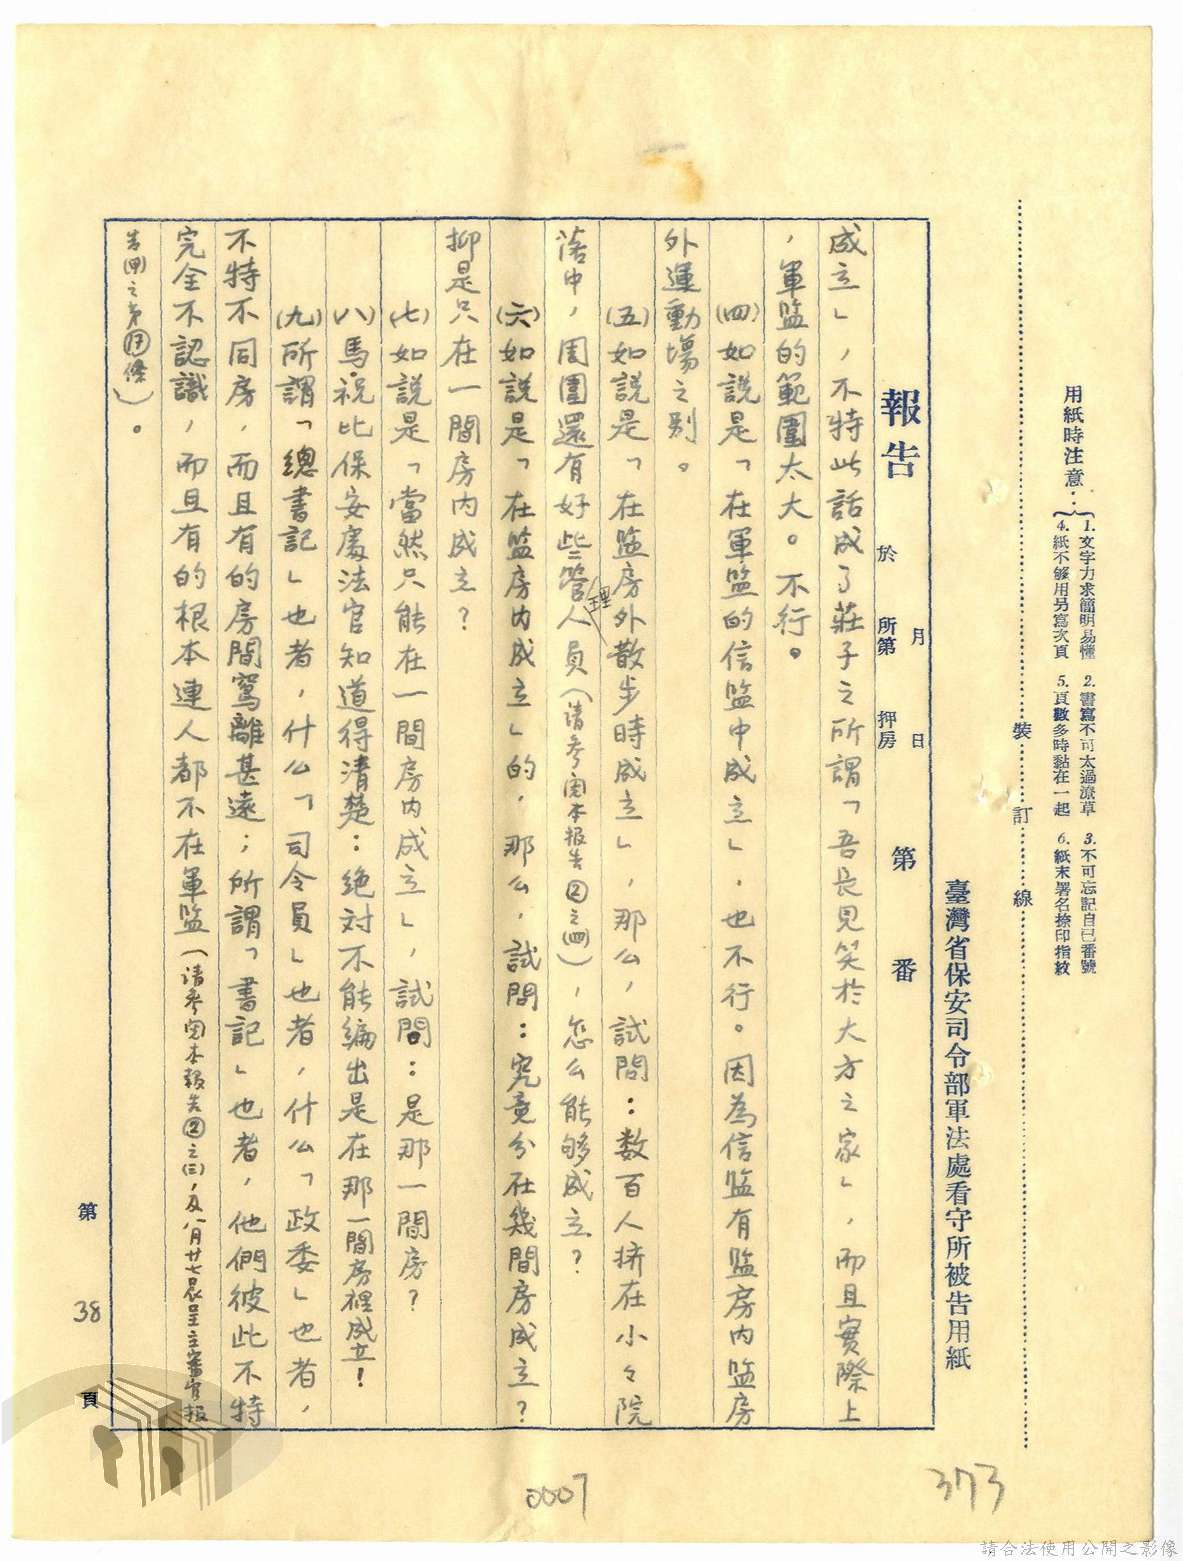 用紙時注意：
1.文字力求簡明易懂　2.書寫不可太過潦草　3.不可忘記自己番號
4.紙不够用另寫次頁　5.頁數多時黏在一起　6.紙末署名捺印指紋
裝　訂　線
臺灣省保安司令部軍法處看守所被告用紙
報告　於　月　日　所第　押房　第　番
成立」，不特此話成了莊子之所謂「吾長見笑於大方之家」，而且實際上
，軍监的範圍太大。不行。
(四)如說是「在軍监的信监中成立」，也不行。因為信监有监房内监房
外運動場之别。
(五)如說是「在监房外散步時成立」，那么，試問：数百人挤在小々院
落中，周圍還有好些管理人員（请参阅本报告②之四），怎么能够成立？
(六)如說是「在监房内成立」的，那么，試問：究竟分在幾間房成立？
抑是只在一間房内成立？
(七)如說是「當然只能在一間房内成立」，試問：是那一間房？
(八)馬、祝比保安處法官知道得清楚：绝对不能编出是在那一間房裡成立！
(九)所謂「總書記」也者，什么「司令員」也者，什么「政委」也者，
不特不同房，而且有的房間窵離甚遠；所謂「書記」也者，他們彼此不特
完全不認識，而且有的根本連人都不在軍监（请参阅本報告②之(三)，及八月廿七晨呈主審官报
告(甲)之第条）。
第 38 頁
0007
373
請合法使用公開之影像